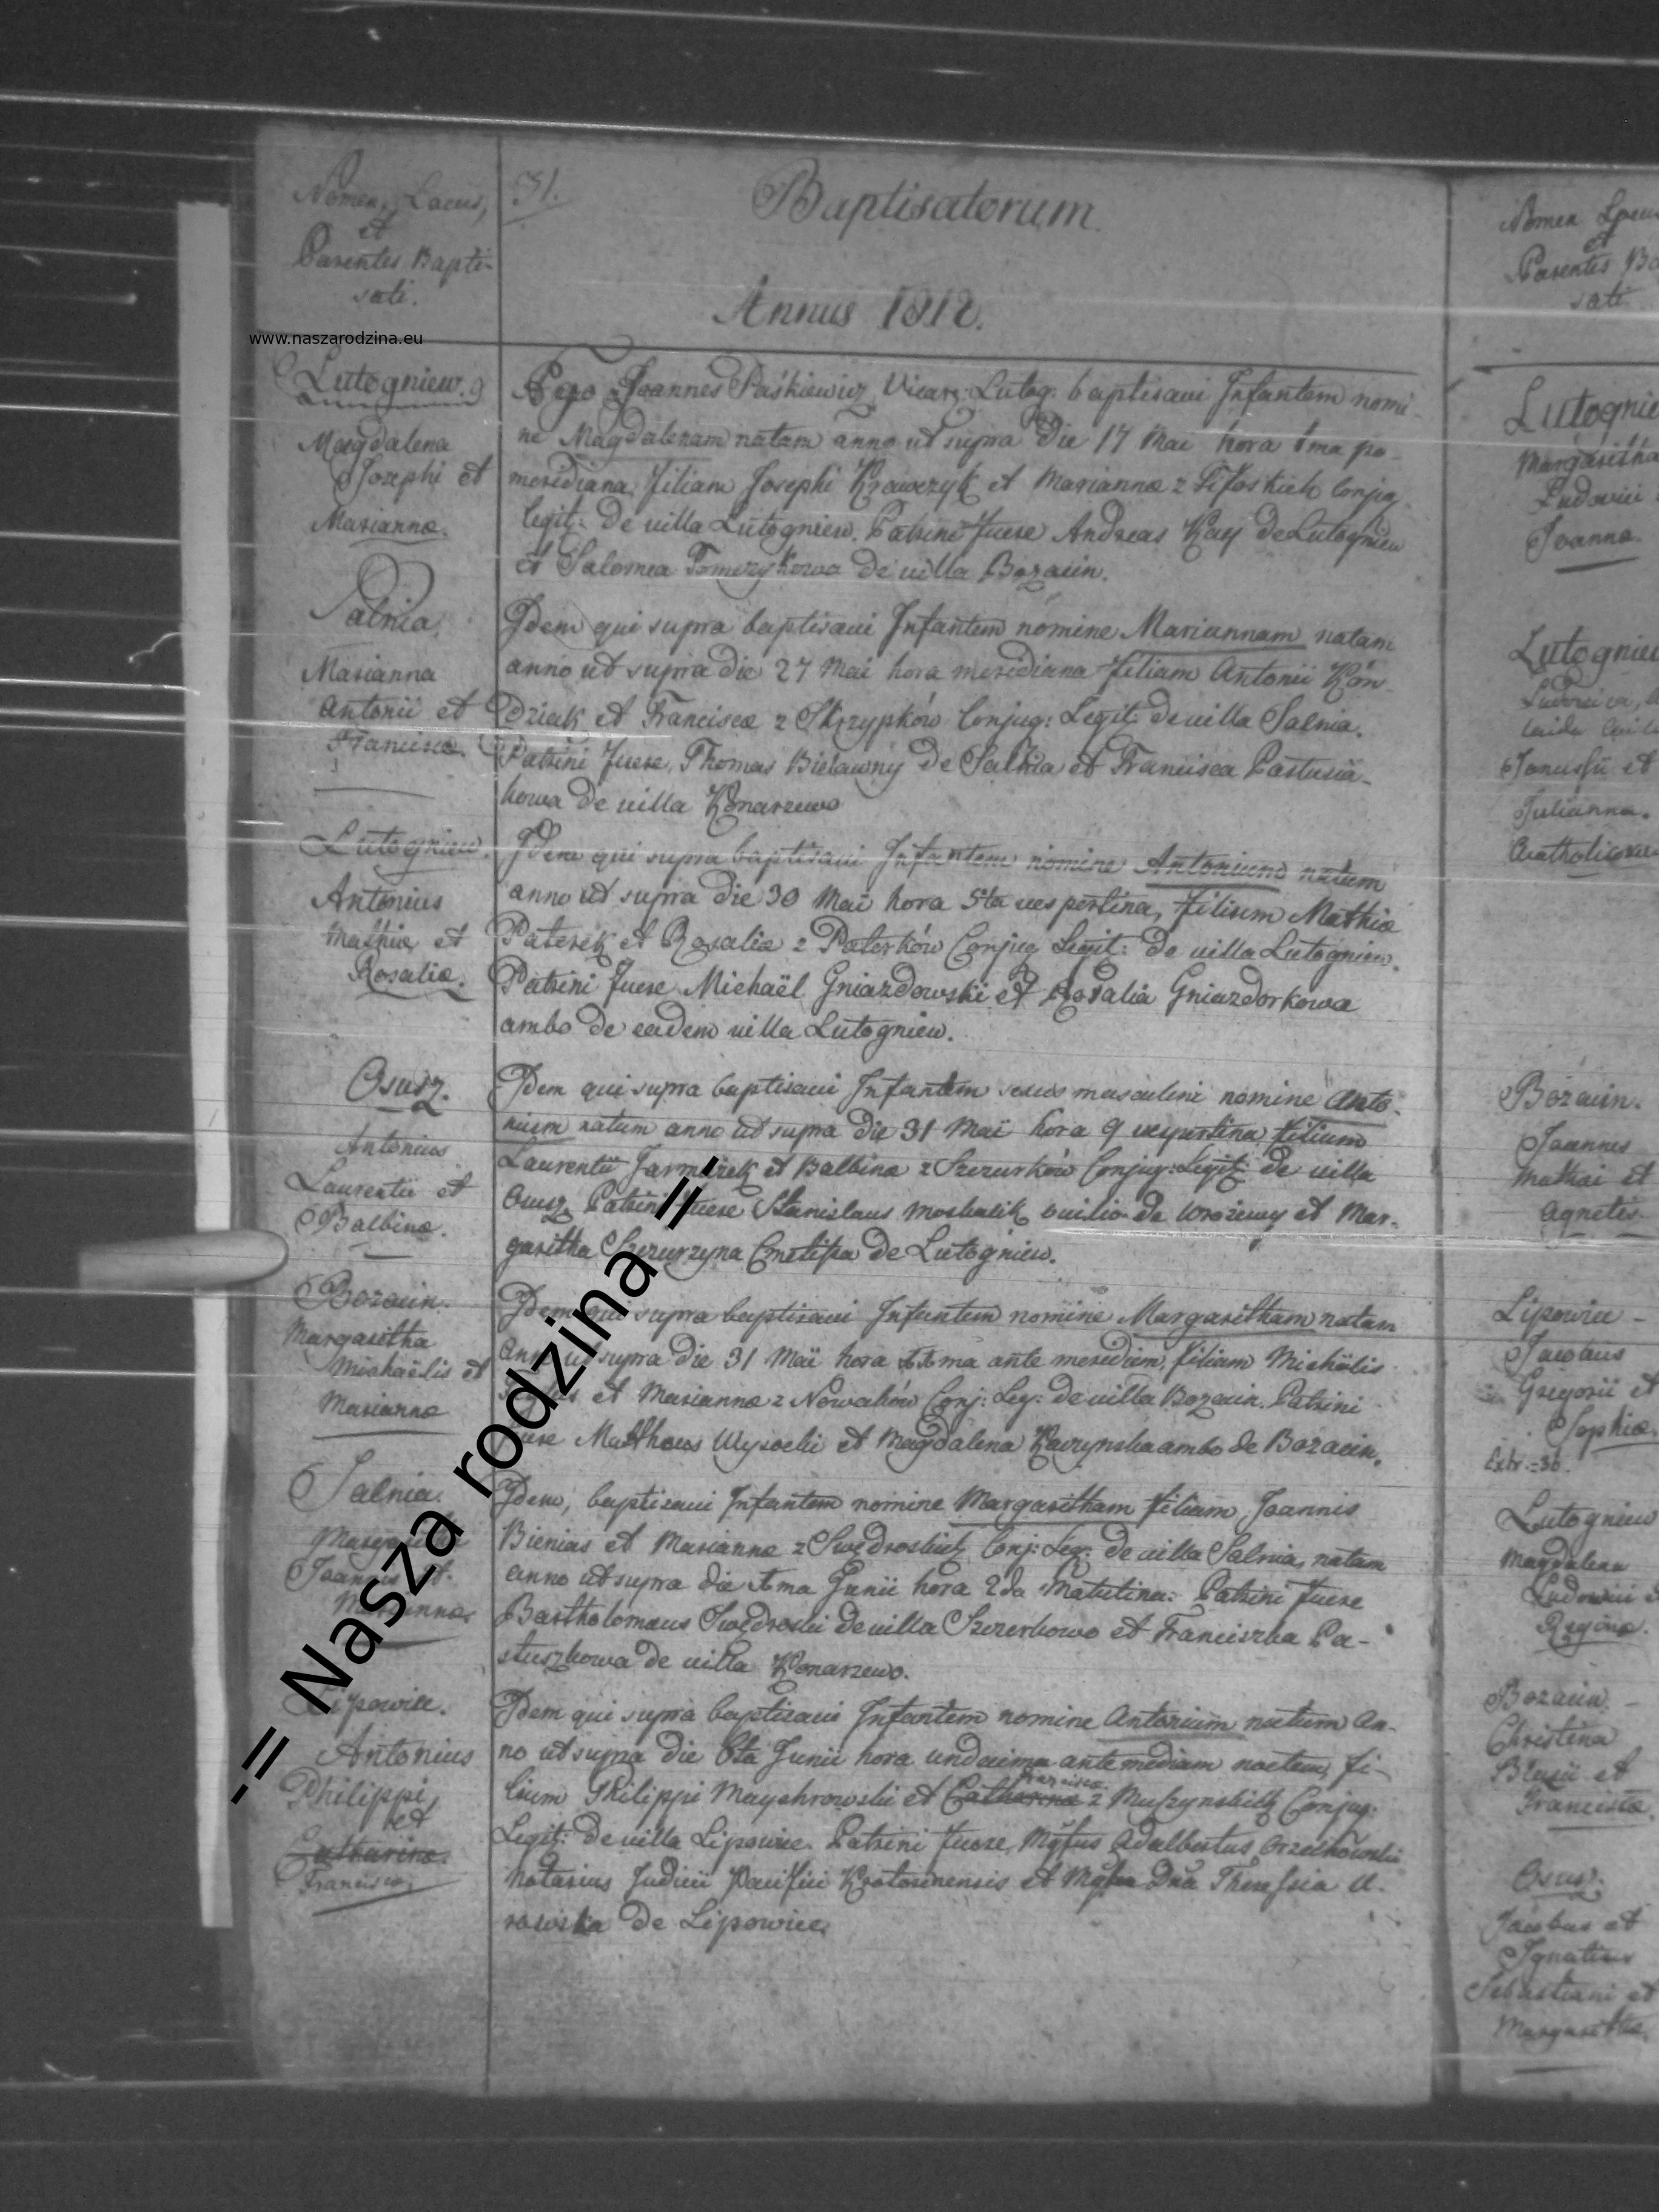 Nomen, Locus,
et
Parentes Bapti-
sati.
31.
Baptisatorum
Annus 1812.
www.naszarodzina.eu
Lutogniew.
Magdalena
Josephi et
Marianna.
Ego Joannes Paśkiewicz Vicar: Lutog: baptisavi Infantem nomi-
ne Magdalenam natam anno ut supra die 17 Mai hora 1ma po-
meridiana, filiam Josephi Krawczyk et Marianna z Conjug.
legit: de villa Lutogniew. Patrini fuere Andreas de Lutogniew
et Salomea Tomczykowa de villa Bozacin.
Salnia
Marianna
Antonii et
Francisca.
Idem qui supra baptisavi Infantem nomine Mariannam natam
anno ut supra die 27 Mai hora meridiana filiam Antonii Kón-
dziak et Francisca z Skrzypków Conjug: Legit: de villa Salnia.
Patrini fuere, Thomas Bielawny de Salnia et Francisca Pastusia-
kowa de villa Konarzewo
Lutogniew.
Antonius
Mathia et
Rosalia.
Idem qui supra baptisavi Infantem nomine Antonium natum
anno ut supra die 30 Mai hora 5ta vespertina, filium Mathia
Paterek et Rosalia z Paterków Conjug Legit: de villa Lutogniew.
Patrini fuere Michaël Gniazdowski et Rosalia Gniazdorkowa
ambo de eadem villa Lutogniew.
Osusz.
Antonius
Laurentii et
Balbina.
Idem qui supra baptisavi Infantem sexus masculini nomine Anto-
nium natum anno ut supra die 31 Mai hora 9 vespertina filium
Laurentii et Balbina z Szczurków Conjug: Legit: de villa
Osusz. Patrini fuere Stanislaus de et Mar-
garitha Szczurzyna de Lutogniew.
Bozacin.
Margaritha
Michaëlis et
Marianna
Idem qui supra baptisavi Infantem nomine Margaritham natam
anno ut supra die 31 Mai hora ante meridiem, filiam Michälis
et Marianna z Nowaków Conj: Leg: de villa Bozacin. Patrini
fuere Mathaus Wysocki et Magdalena Kaczynska ambo de Bozacin.
Salnia.
Margaritha
Joannis et
Marianna.
Idem, baptisavi Infantem nomine Margaritham filiam, Joannis
Bienias et Marianna z Swędroskich Conj: Leg: de villa Salnia, natam
anno ut supra die 1ma Junii hora 2da Matutina. Patrini fuere
Bartholomaus Swędroski de villa Szczerkowo et Franciszka Pa-
stuszkowa de villa Konarzewo.
Lipowiec.
Antonius
Philippi,
et
Catharina.
Francisca
Idem qui supra baptisavi Infantem nomine Antonium natum an-
no ut supra die 6ta Junii hora undecima ante mediam noctem, fi-
Francisca
lium Philippi Maychrowski et Catharina z Muszynskich Conjug:
Legit: de villa Lipowiec. Patrini fuere, Adalbertus Orzechowski
Notarius Judicii Pacifici Krotosinensis et Theressia U-
rowska de Lipowiec
-= Nasza rodzina =-
Nomen Locus
et
Parentes Ba
sati.
Lutogniew
Margaritha
Ludovici
Joanna.
Lutogniew
Julianna.
Bozacin.
Joannes
Mathai et
Agnetis.
Lipowiec -
Jacobus
Gregorii et
Sophia.
Lutogniew
Magdalena
Ludovici et
Regina.
Bozacin. -
Christina
Blasii et
Francisca.
Osusz.
Jacobus et
Ignatius
Sebastiani et
Margaritha.